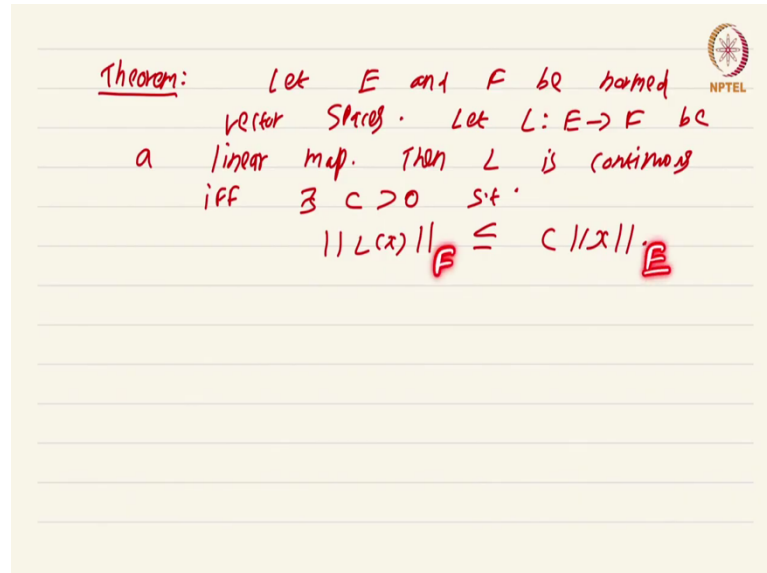 Theorem: Let E and F be normed
NPTEL
vector spaces. Let L: E→F be
a linear map. Then L is continuous
iff ∃ C>0 s.t.
||L(x)||_F ≤ C||x||_E.